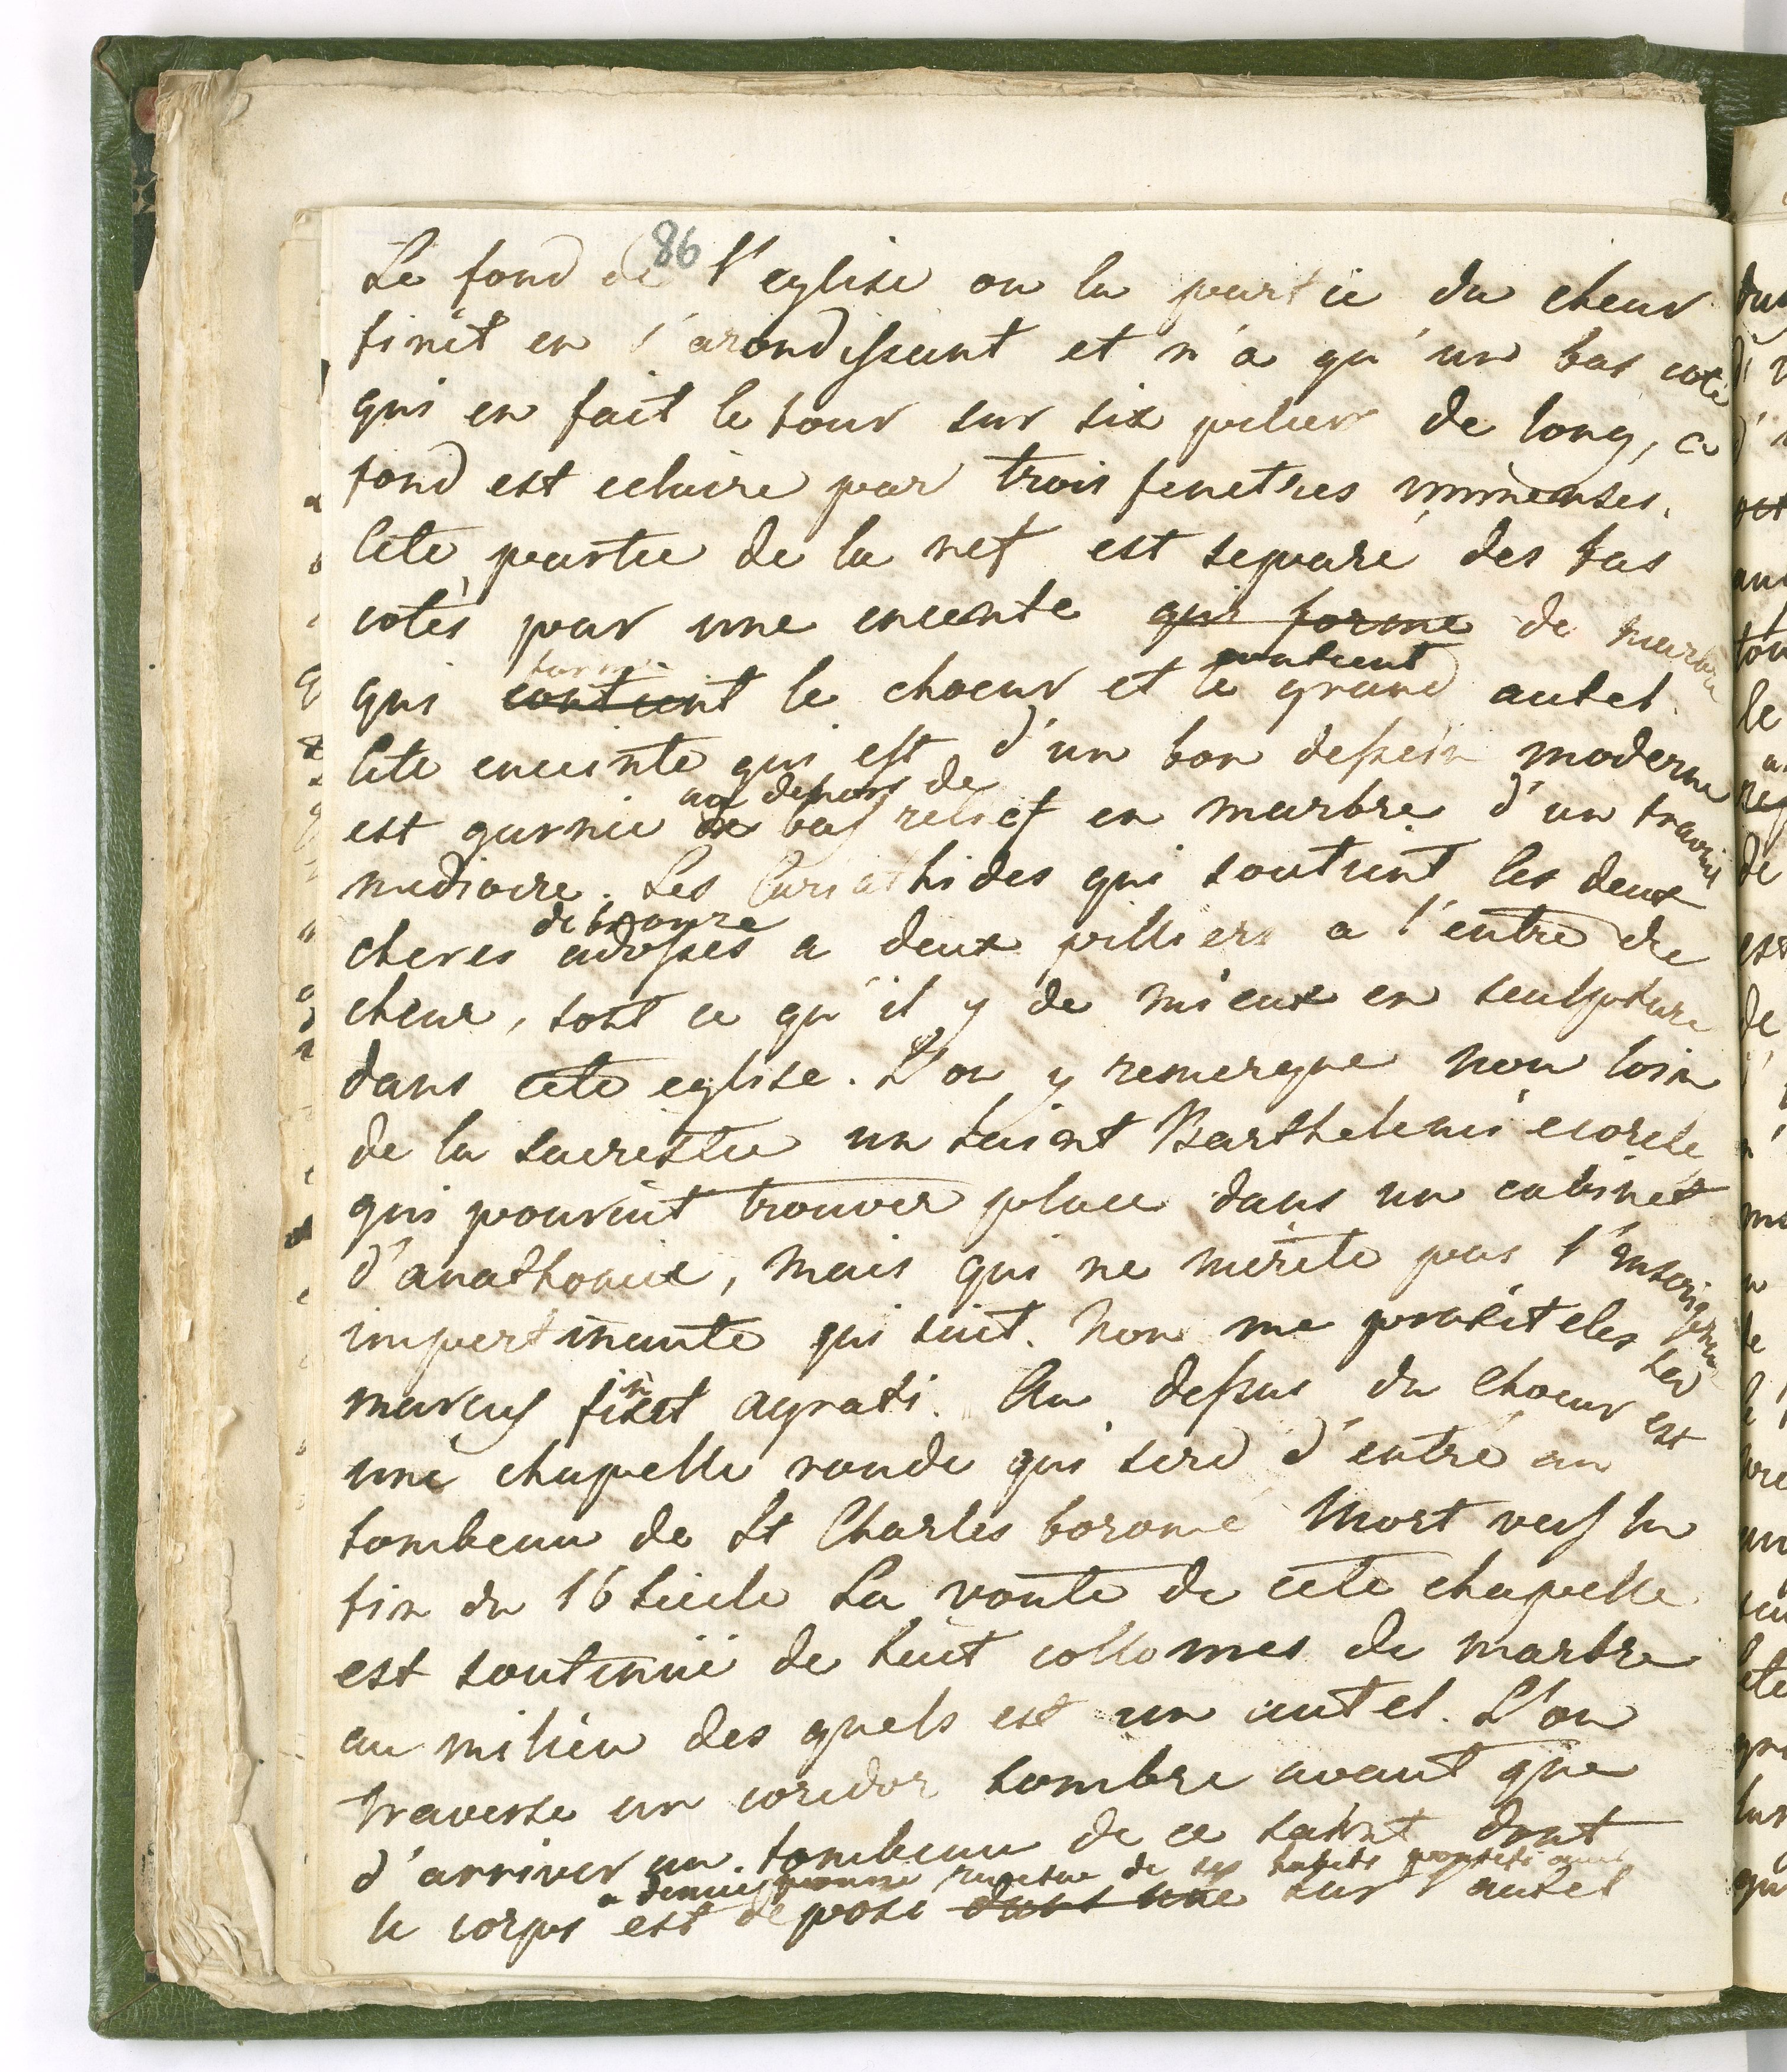 86
Le fond de l'eglise ou la partie du cheur
finit en l'arondissant et n'a qu'un bas coté
qui en fait le tour sur six pilier de long, ce
fond est eclaire par trois fenetres immenses.
Cete partie de la nef est separé des bas
cotés par une enceinte qui forme de marbre
forme contient
qui contient le choeur et le grand autel.
Cete enceinte qui est d'un bon dessein moderne
au dehors de
est garnie de bas relief en marbre d'un travail
mediocre. Les Cariathides qui soutient les deux
de bronze
cheres adossés a deux pilliers a l'entre de
cheur, sont ce qu'il y de mieux en sculpture
dans cete eglise. L'on y remerque non loin
de la sacrestie un saint Barthelemi ecorché
qui pouroit trouver place dans un cabinet
d'anathomie, mais qui ne merite pas l'inscription
impertinante qui suit. Non me praxiteles sed
marcus finxit agrati. Au dessus du choeur est
une chapelle ronde qui serd d'entré au
tombeau de St Charles boromé mort vers la
fin du 16 siecle La voute de cete chapelle
est soutenuë de huit collomes de marbre
au milieu des quels est un autel. L'on
traverse un coridor sombre avant que
d'arriver au tombeau de ce saint dont
revetue de ses habits
le corps est deposé dans une sur l'autel